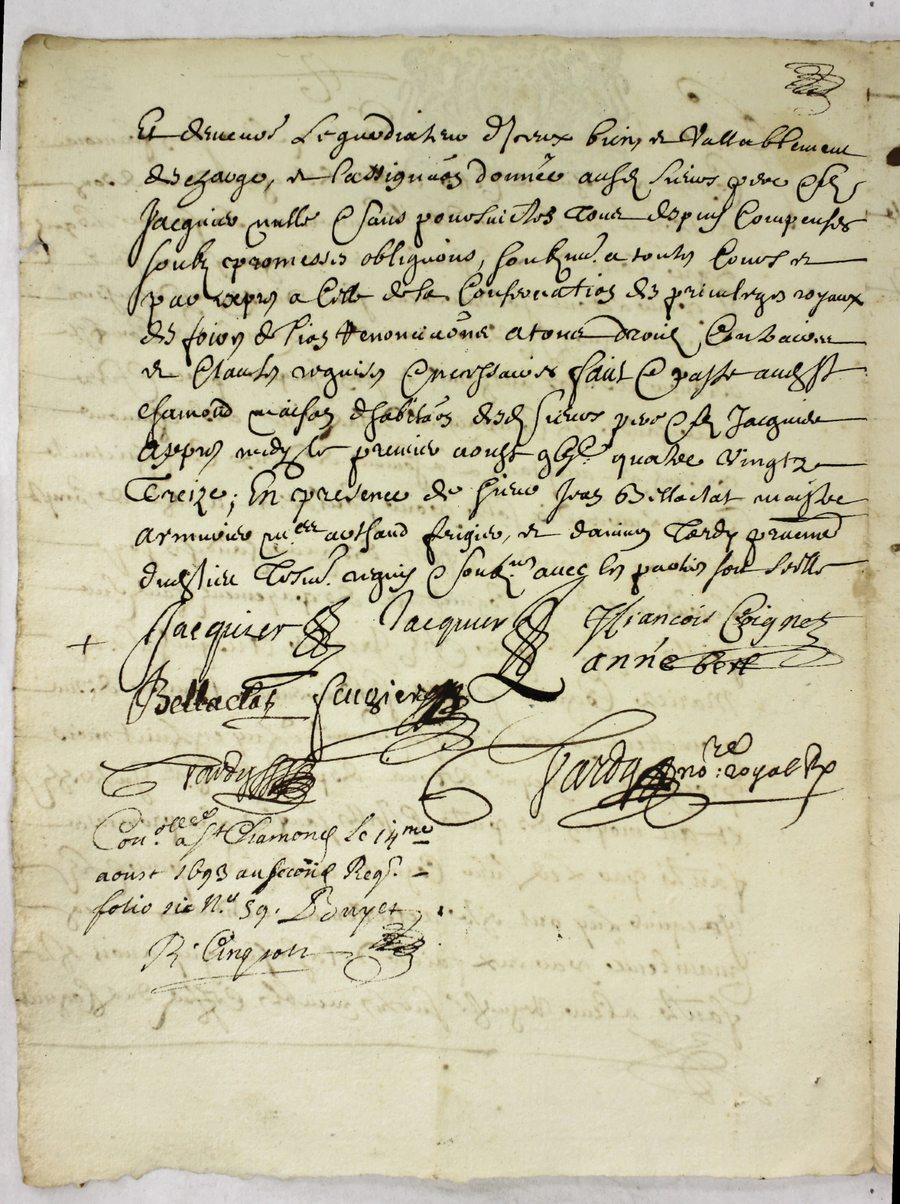 Et demeurés Le gardiateur d'Iceux biens et Vallablement
deschargé, et l'assignaon donnée ausd. sieurs pere & filz
Jacquier nulle & sans poursuittes Tous despuis Compensés
soubz promesses obligaons, soubzmis. a toutes Cours et
par expres a Celle de la Conservation des privileges royaux
des foires de Lion Renonciaons a tous droitz Contraires
et Clauses requises & necessaires fait & passé aud. St
Chamond maison d'habitaon desd. sieurs pere & filz Jacquier
appres midy le premier aoust quatre Vingtz
Treize, En presence de sieur Jean Bellaclat maistre
armurier et Tardy
dud. lieu Tesm. requis & soubz.nes avec les parties
Jacquier Jacquier François Coignet
anné bert
Bellaclat
Tardy Tardy no.re royal
Con.ollé a St Chamond le 14me
aoust 1693 au second Reg.
folio six N.o 59.
R. Cinq sols